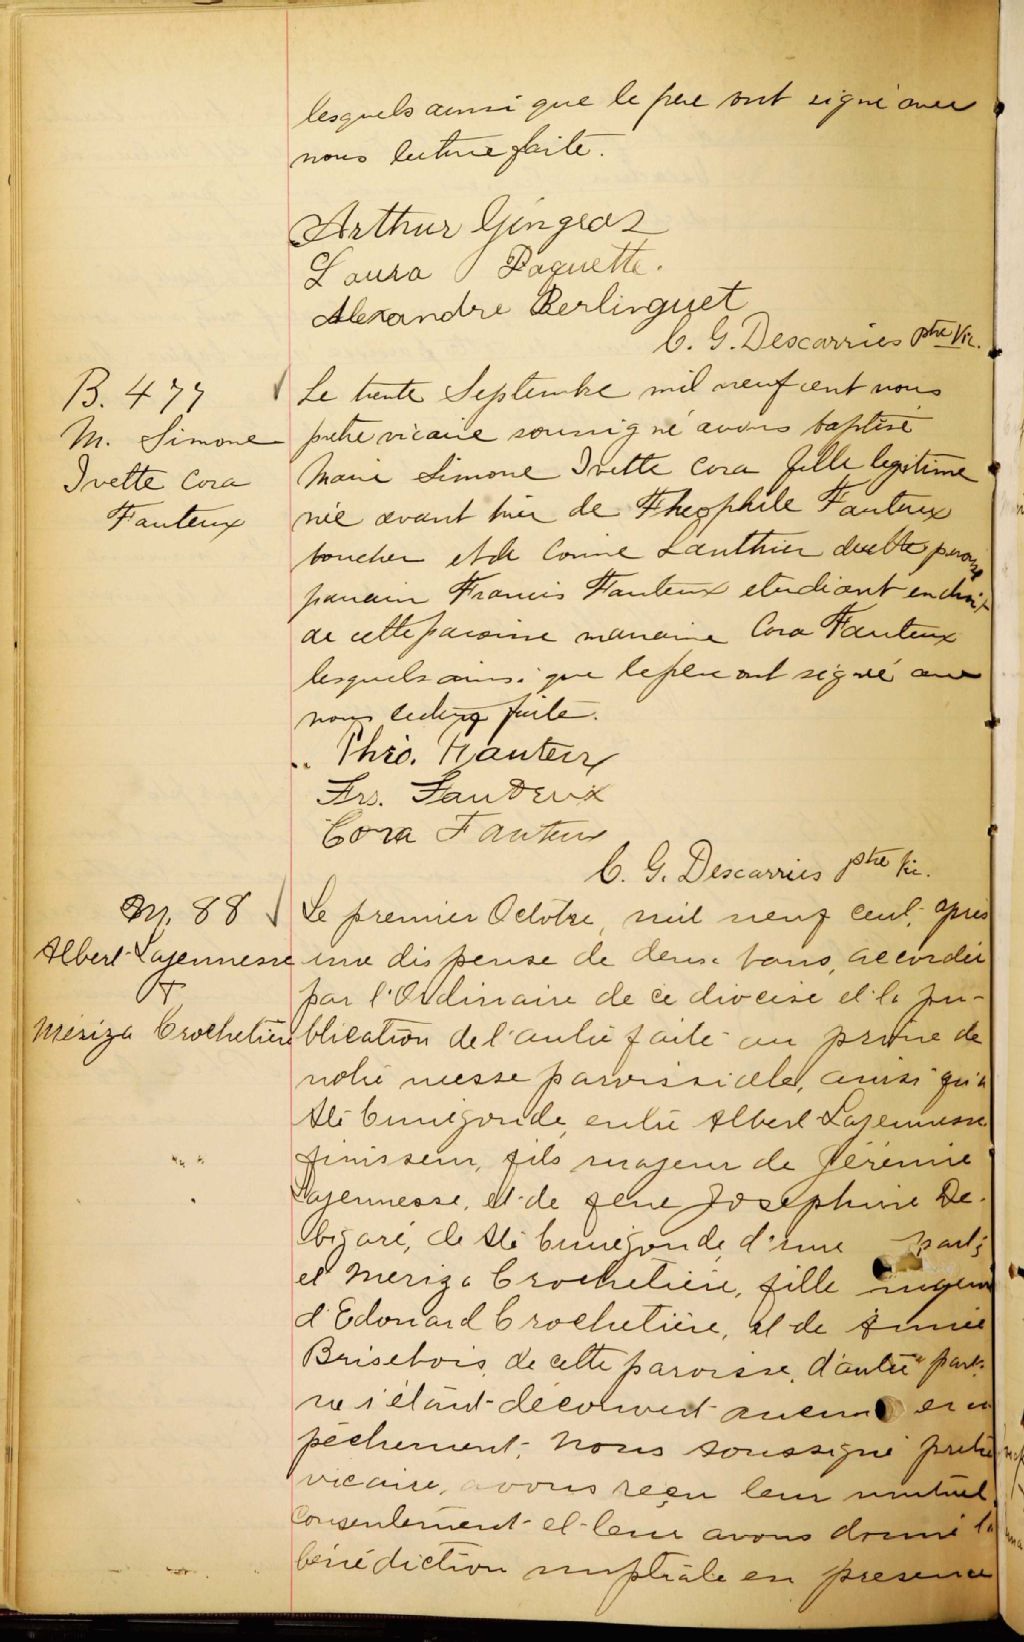 lesquels ainsi que le père ont signé avec
nous lecture faite.
Arthur Gingras
Laura Paquette.
Alexandre Berlinguet
C. G. Descarries ptre Vic.
B. 477
M. Simone
Ivette Cora
Fauteux
Le trente Septembre mil neuf cent nous
prêtre vicaire soussigné avons baptisé
Marie Simone Ivette Cora fille légitime
née avant hier de Théophile Fauteux
boucher et de Corine Lanthier de cette paroisse
parrain Francis Fauteux etudiant en droit
de cette paroisse marraine Cora Fauteux
lesquels ainsi que le père ont signé avec
nous lecture faite.
Théo. Fauteux
Frs. Fauteux
Cora Fauteux
C. G. Descarries ptre Vic.
M. 88
Albert Lajeunesse
+
Meriza Crochetière
Le premier Octobre, mil neuf cent, après
une dispense de deux bans, accordée
par l'Ordinaire de ce diocèse et la pu-
blication de l'autre faite au prône de
notre messe paroissiale, ainsi qu'à
Ste Cunégonde, entre Albert Lajeunesse
finisseur, fils majeur de Jérémie
Lajeunesse, et de feue Josephine De-
bigaré, de Ste Cunégonde, d'une part;
et Meriza Crochetière, fille majeure
d'Edouard Crochetière, et de Aimée
Brisebois, de cette paroisse, d'autre part;
ne s'étant découvert aucun em
pêchement; Nous soussigné prêtre
vicaire, avons reçu leur mutuel
consentement et leur avons donné la
bénédiction nuptiale en présence